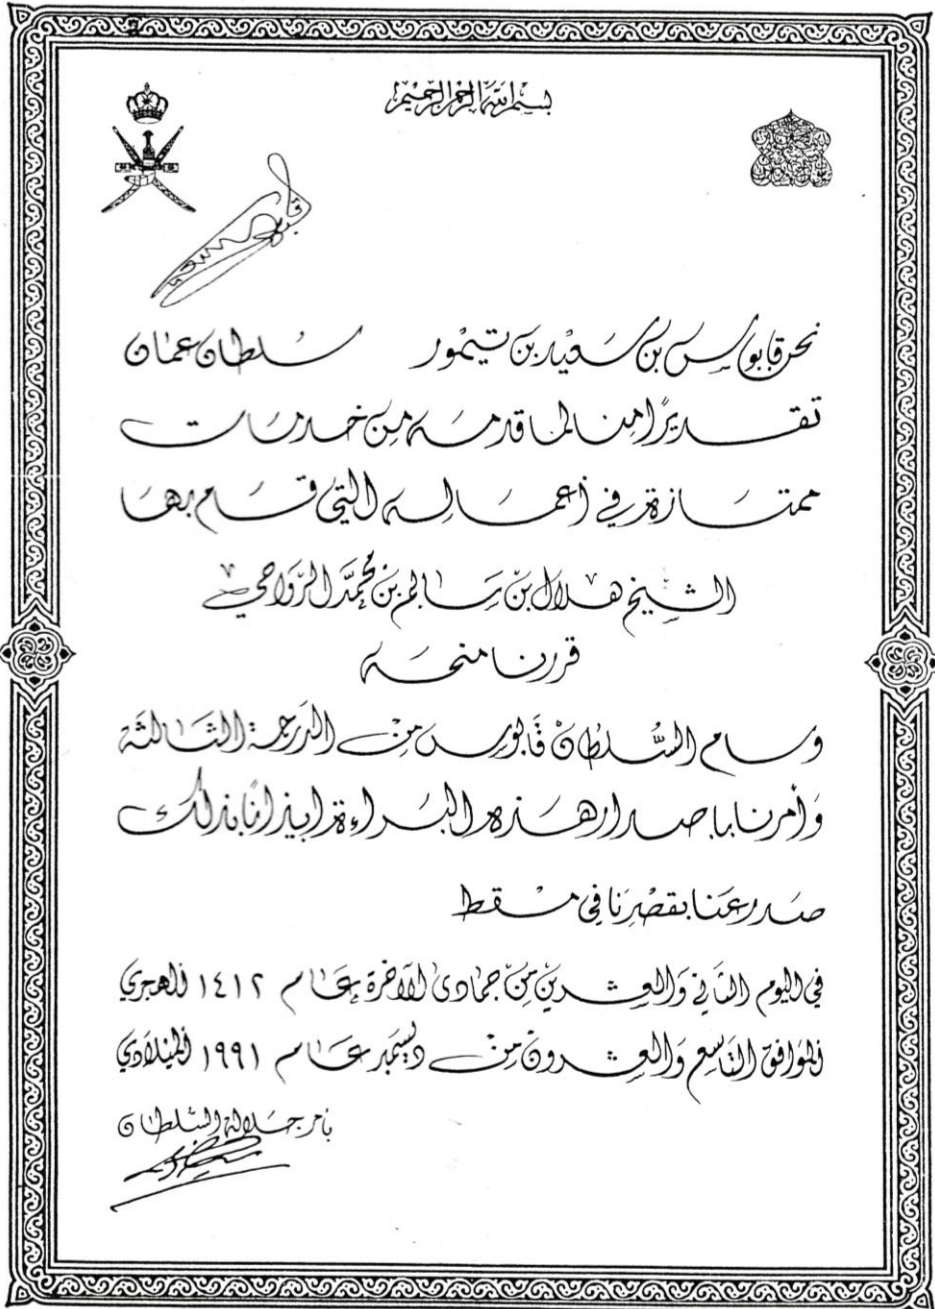 بسم الله الرحمن الرحيم
نحن قابوس بن سعيد بن تيمور سلطان عمان
تقديرًا منا لما قدمه من خدمات
ممتازة في أعماله التي قام بها
الشيخ هلال بن سالم بن محمد الرواحي
قررنا منحه
وسام السلطان قابوس من الدرجة الثالثة
وأمرنا بإصدار هذه البراءة إيذانًا بذلك
صدر عنا بقصرنا في مسقط
في اليوم الثاني والعشرين من جمادى الآخرة عام ١٤١٢ الهجري
الموافق التاسع والعشرون من ديسمبر عام ١٩٩١ الميلادي
بأمر جلالة السلطان